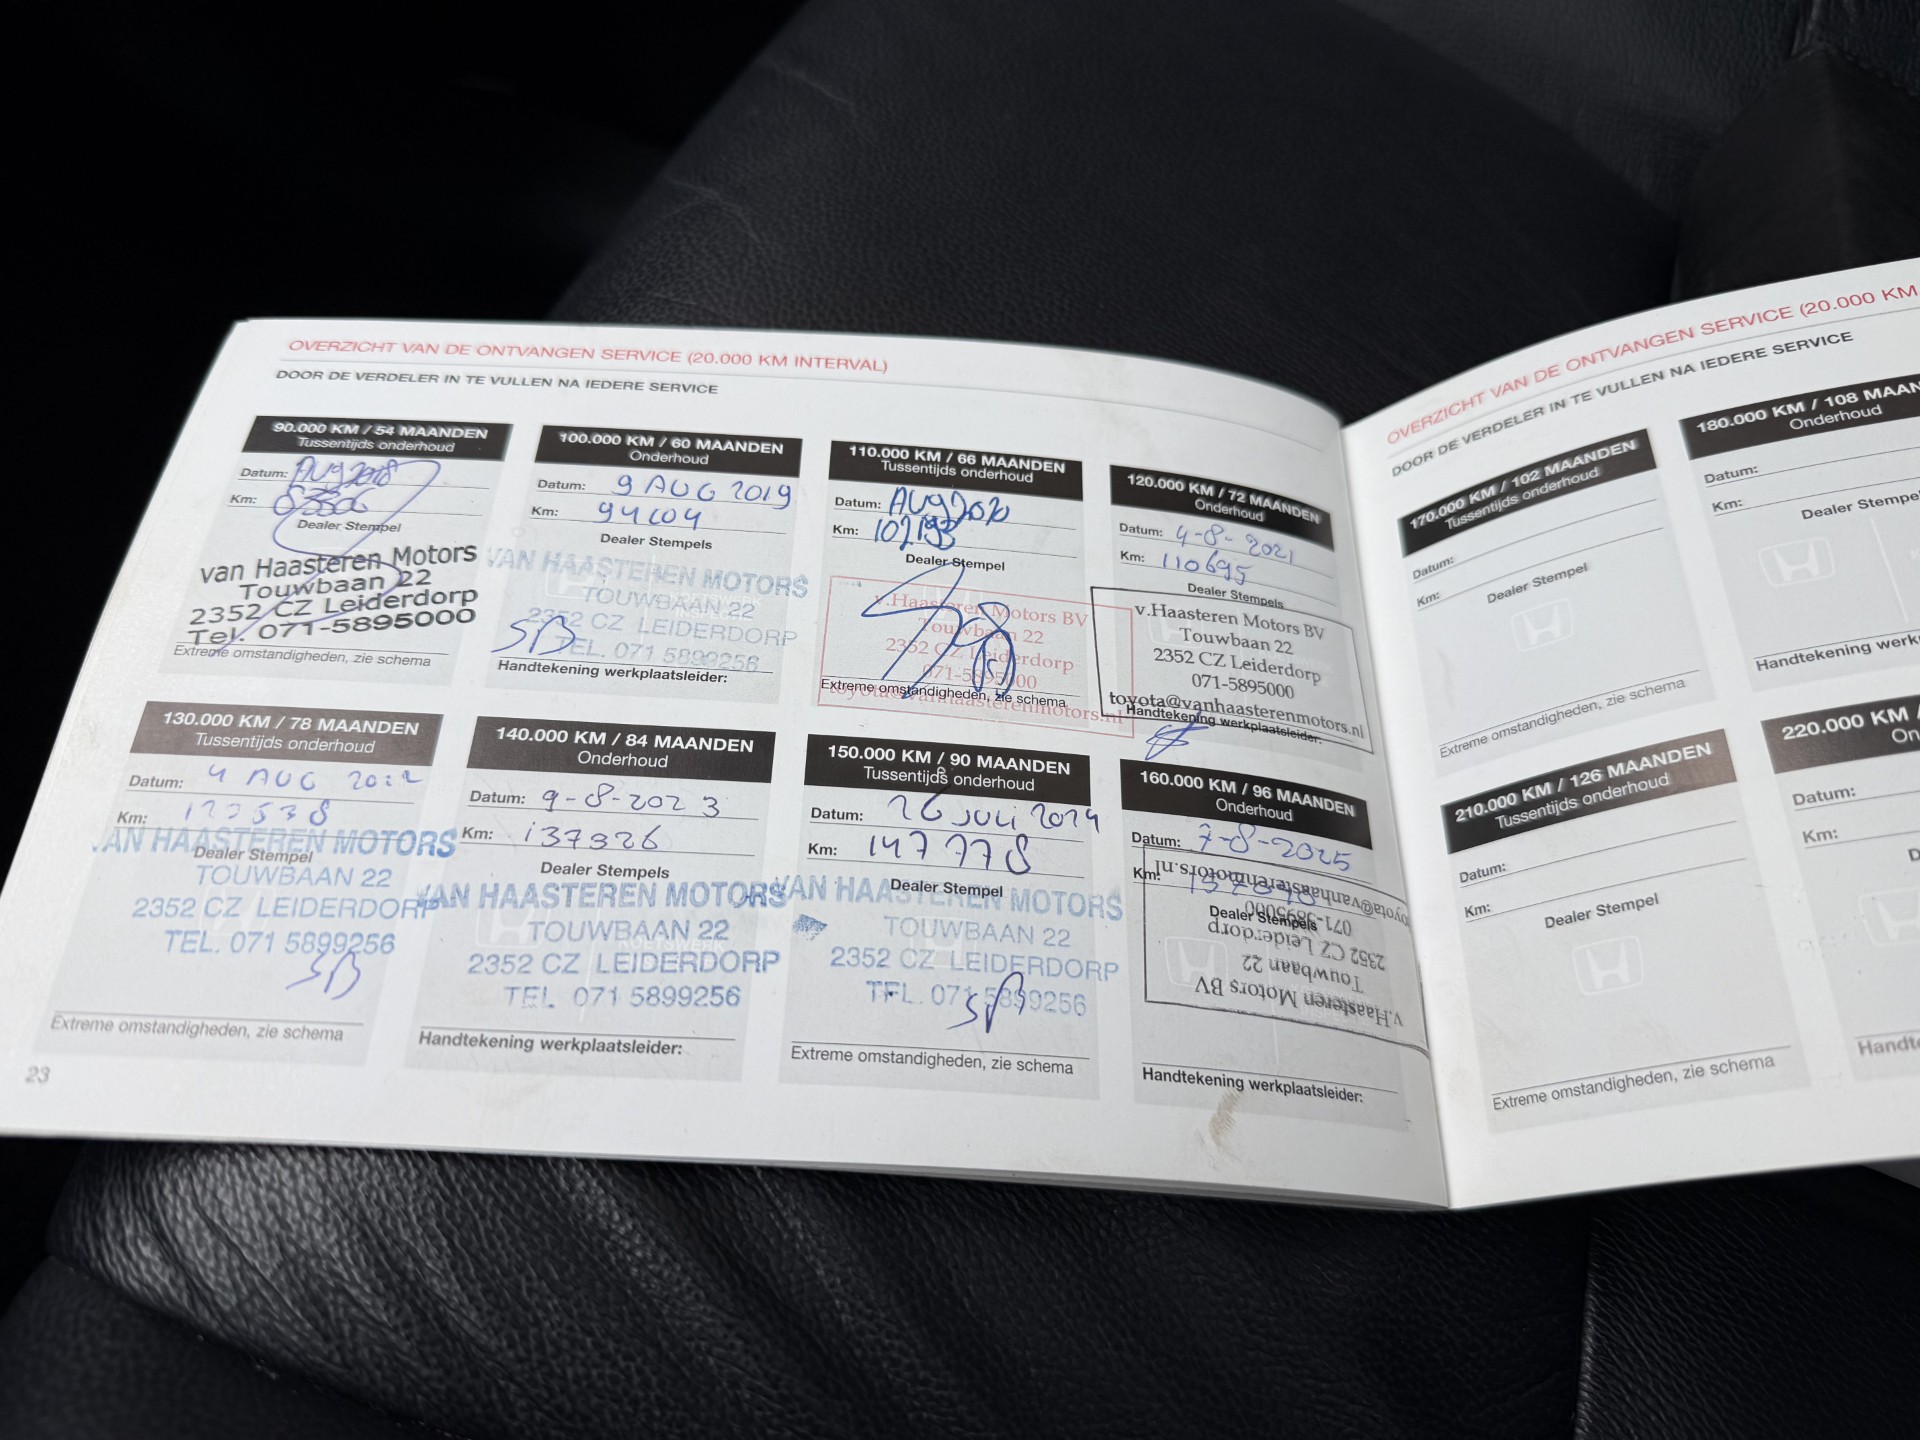 OVERZICHT VAN DE ONTVANGEN SERVICE (20.000 KM INTERVAL)
DOOR DE VERDELER IN TE VULLEN NA IEDERE SERVICE
90.000 KM / 54 MAANDEN
Tussentijds onderhoud
Datum: AUG 2018
Km:
Dealer Stempel
van Haasteren Motors
Touwbaan 22
2352 CZ Leiderdorp
Tel. 071-5895000
Extreme omstandigheden, zie schema
100.000 KM / 60 MAANDEN
Onderhoud
Datum: 9 AUG 2019
Km:
Dealer Stempels
VAN HAASTEREN MOTORS
TOUWBAAN 22
2352 CZ LEIDERDORP
TEL. 071 5899256
SB
Handtekening werkplaatsleider:
110.000 KM / 66 MAANDEN
Tussentijds onderhoud
Datum: AUG 2020
Km: 102193
Dealer Stempel
v.Haasteren Motors BV
Touwbaan 22
2352 CZ Leiderdorp
071-5895000
Extreme omstandigheden, zie schema
toyota@vanhaasterenmotors.nl
120.000 KM / 72 MAANDEN
Onderhoud
Datum: 4-8-2021
Km: 110695
Dealer Stempels
v.Haasteren Motors BV
Touwbaan 22
2352 CZ Leiderdorp
071-5895000
toyota@vanhaasterenmotors.nl
Handtekening werkplaatsleider:
130.000 KM / 78 MAANDEN
Tussentijds onderhoud
Datum: 4 AUG 2022
Km:
Dealer Stempel
VAN HAASTEREN MOTORS
TOUWBAAN 22
2352 CZ LEIDERDORP
TEL. 071 5899256
SB
Extreme omstandigheden, zie schema
140.000 KM / 84 MAANDEN
Onderhoud
Datum: 9-8-2023
Km: 137326
Dealer Stempels
VAN HAASTEREN MOTORS
TOUWBAAN 22
2352 CZ LEIDERDORP
TEL. 071 5899256
Handtekening werkplaatsleider:
150.000 KM / 90 MAANDEN
Tussentijds onderhoud
Datum: 26 JULI 2024
Km: 147778
Dealer Stempel
VAN HAASTEREN MOTORS
TOUWBAAN 22
2352 CZ LEIDERDORP
TEL. 071 5899256
SB
Extreme omstandigheden, zie schema
160.000 KM / 96 MAANDEN
Onderhoud
Datum: 7-8-2025
Km:
Dealer Stempels
v.Haasteren Motors BV
Touwbaan 22
2352 CZ Leiderdorp
071-5895000
toyota@vanhaasterenmotors.nl
Handtekening werkplaatsleider:
23
OVERZICHT VAN DE ONTVANGEN SERVICE (20.000 KM
DOOR DE VERDELER IN TE VULLEN NA IEDERE SERVICE
170.000 KM / 102 MAANDEN
Tussentijds onderhoud
Datum:
Km:
Dealer Stempel
Extreme omstandigheden, zie schema
180.000 KM / 108 MAAN
Onderhoud
Datum:
Km:
Dealer Stempe
Handtekening werk
210.000 KM / 126 MAANDEN
Tussentijds onderhoud
Datum:
Km:
Dealer Stempel
Extreme omstandigheden, zie schema
220.000 KM /
On
Datum:
Km:
D
Handte